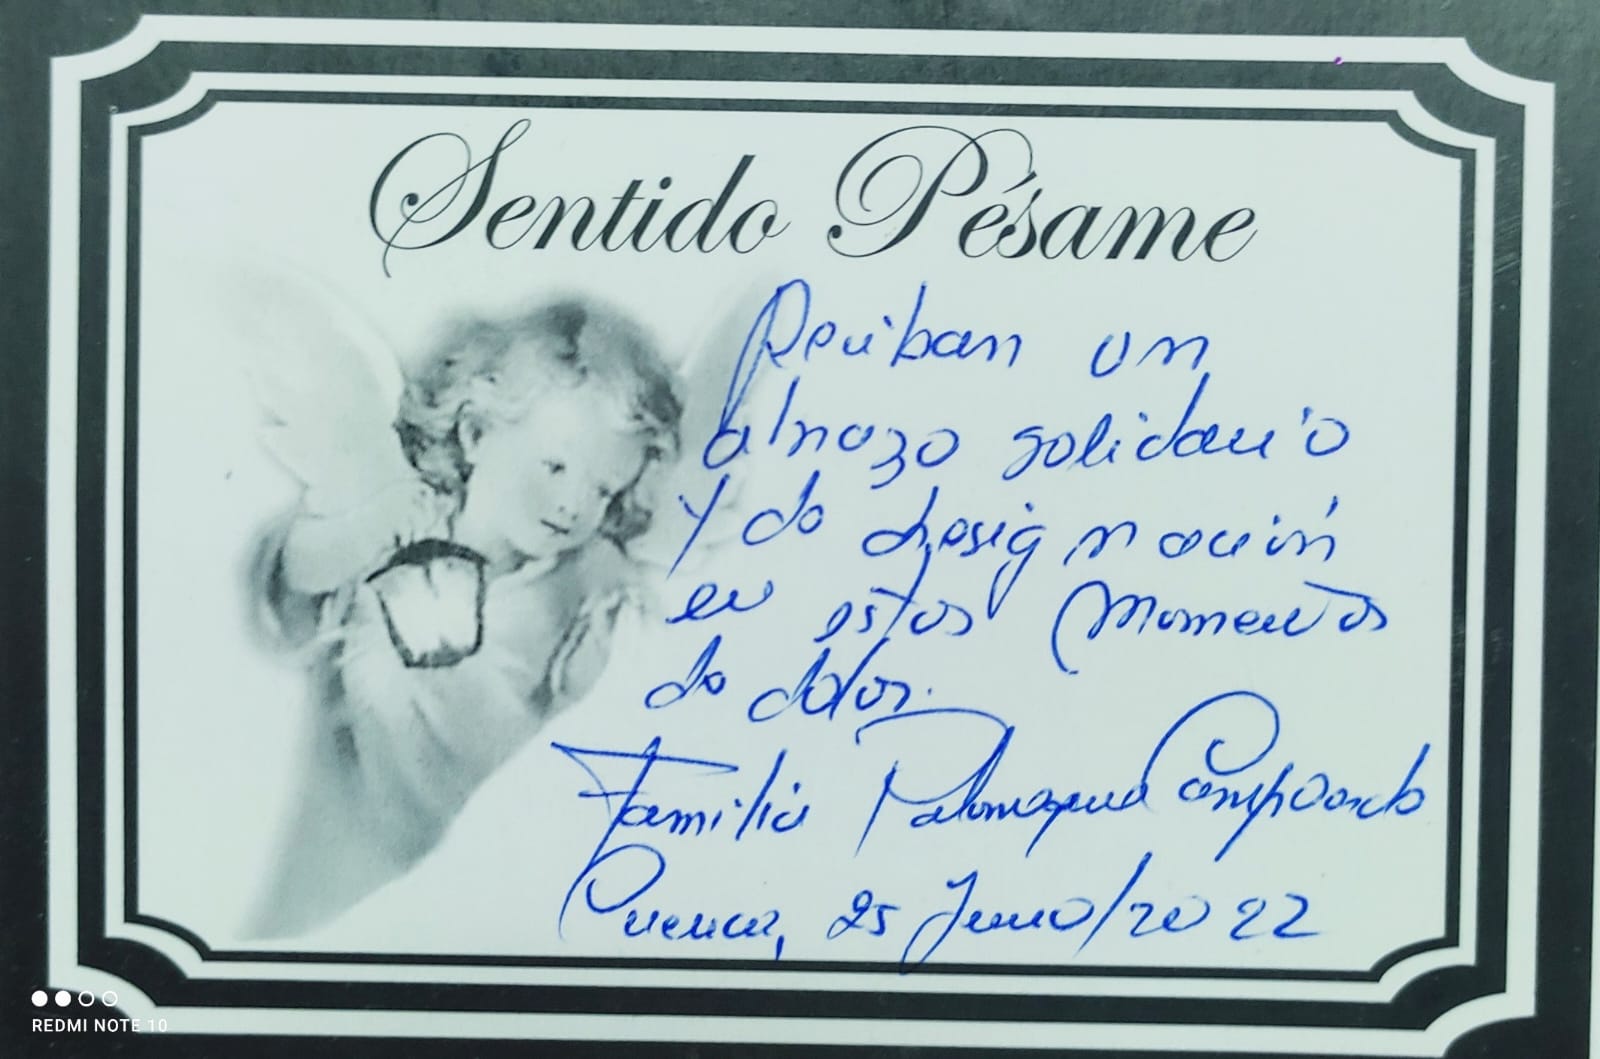 Sentido Pésame
Reciban un
abrazo solidario
y de resignación
en estos momentos
de dolor.
Familia Palomeque
Cuenca, 25 Junio/2022
REDMI NOTE 10